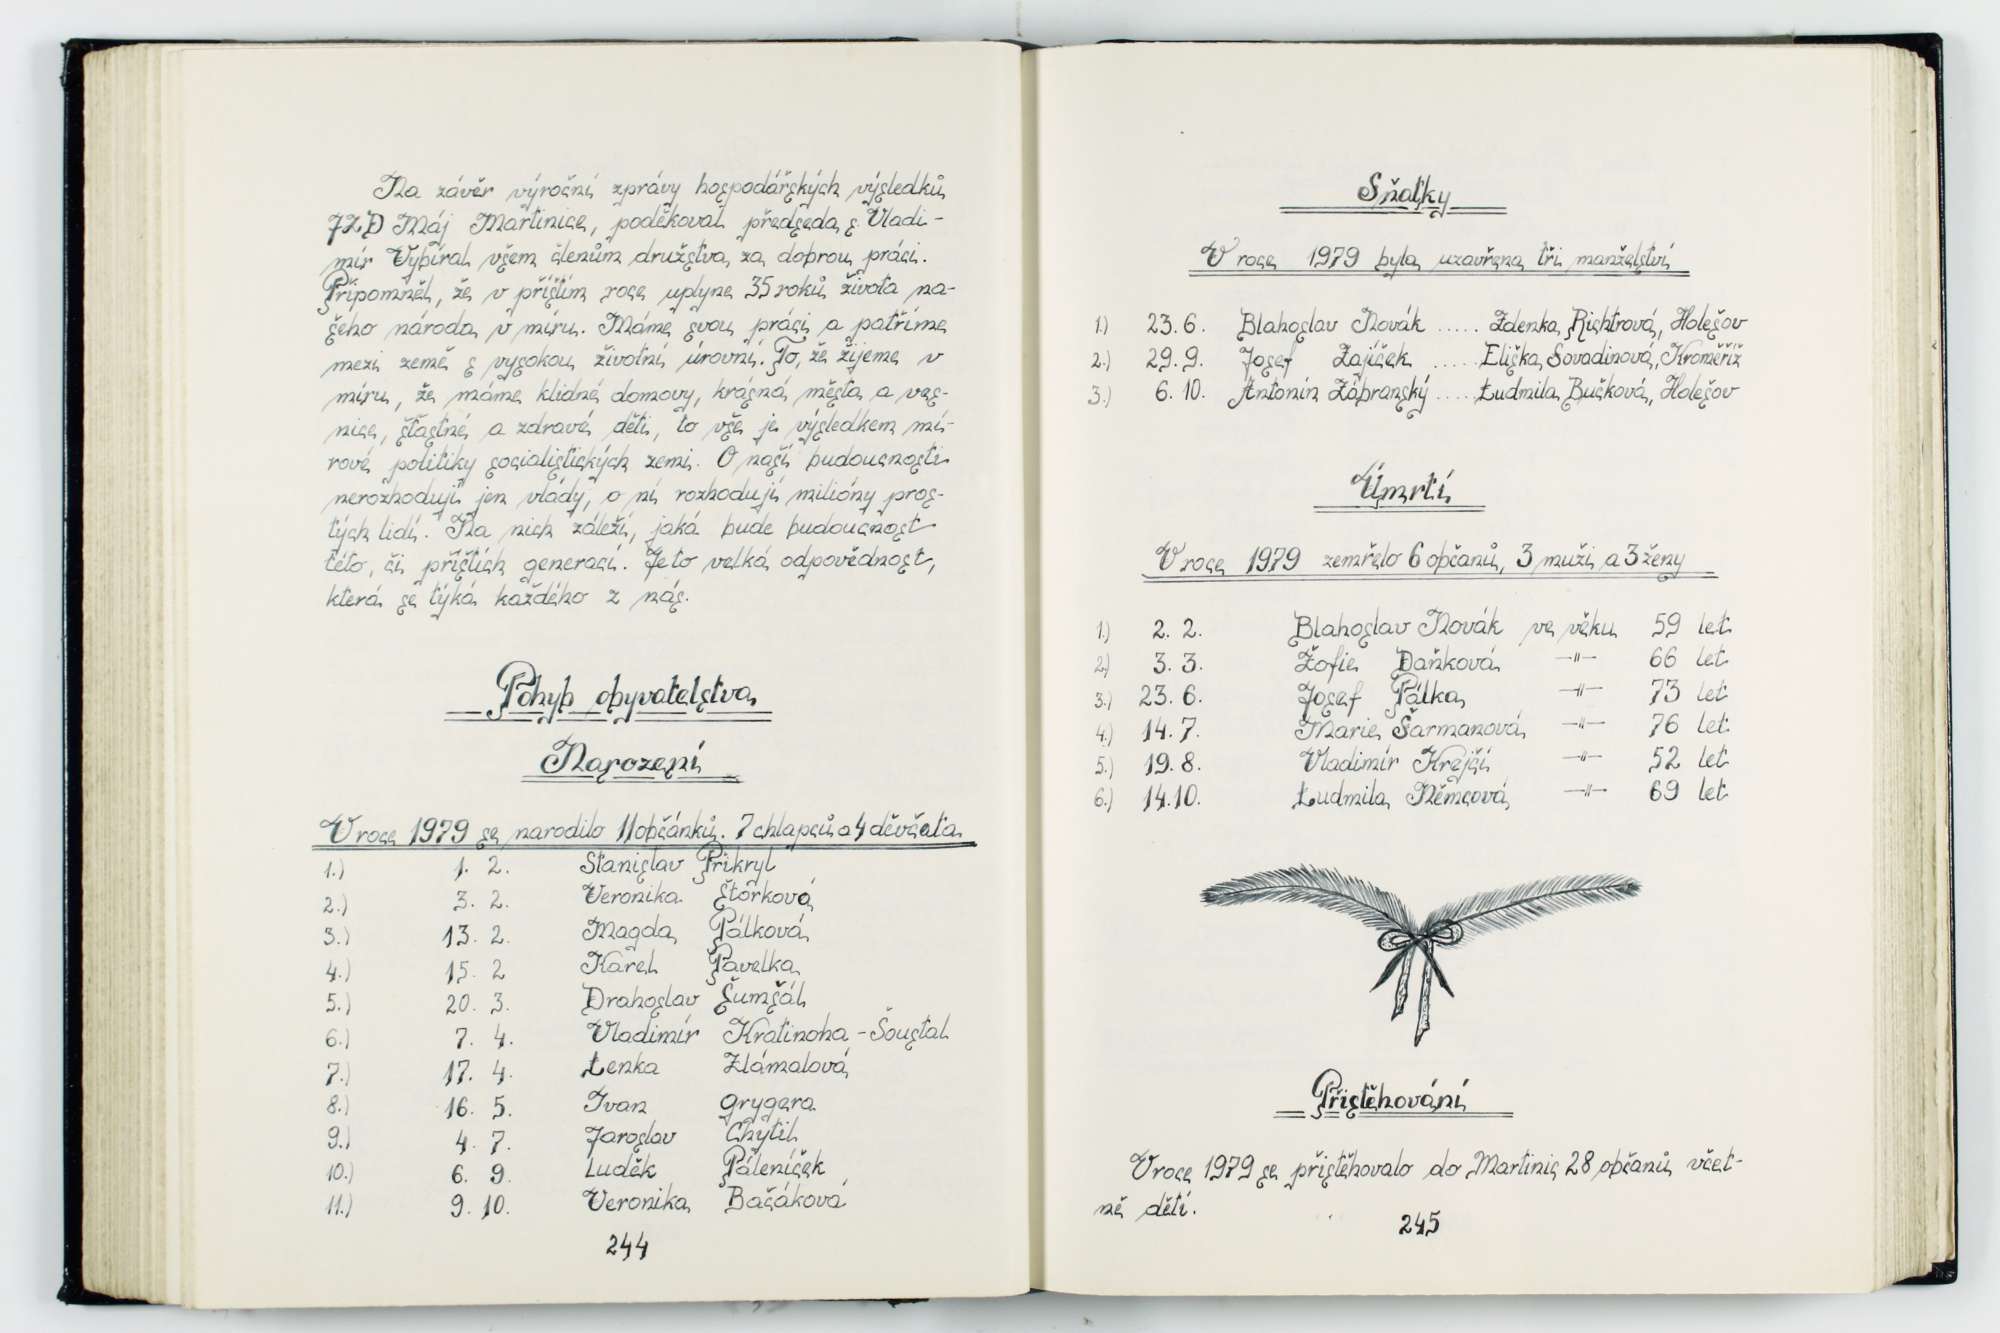 Na závěr výroční zprávy hospodářských výsledků
JZD Máj Martinice, poděkoval předseda s. Vladi-
mír Vybíral všem členům družstva za dobrou práci.
Připomněl, že v příštím roce uplyne 35 roků života na-
šeho národa v míru. Máme svou práci a patříme
mezi země s vysokou životní úrovní. To, že žijeme v
míru, že máme klidné domovy, krásná města a ves-
nice, šťastné a zdravé děti, to vše je výsledkem mí-
rové politiky socialistických zemí. O naší budoucnosti
nerozhodují jen vlády, o ní rozhodují milióny pros-
tých lidí. Na nich záleží, jaká bude budoucnost
této, či příštích generací. Je to velká odpovědnost,
která se týká každého z nás.
Pohyb obyvatelstva
Narození
V roce 1979 se narodilo 11 občánků. 7 chlapců a 4 děvčata.
1.) 1. 2. Stanislav Přikryl
2.) 3. 2. Veronika Štorková
3.) 13. 2. Magda Pálková
4.) 15. 2 Karel Pavelka
5.) 20. 3. Drahoslav Šumšál
6.) 7. 4. Vladimír Kratinoha - Šoustal
7.) 17. 4. Lenka Zlámalová
8.) 16. 5. Ivan Grygera
9.) 4. 7. Jaroslav Chytil
10.) 6. 9. Luděk Páleníček
11.) 9. 10. Veronika Bačáková
244
Sňatky
V roce 1979 byla uzavřena tři manželství
1.) 23. 6. Blahoslav Novák ..... Zdenka Richtrová, Holešov
2.) 29. 9. Josef Zajíček ..... Eliška Sovadinová, Kroměříž
3.) 6. 10. Antonín Zábranský .... Ludmila Bučková, Holešov
Úmrtí
V roce 1979 zemřelo 6 občanů, 3 muži a 3 ženy
1.) 2. 2. Blahoslav Novák ve věku 59 let
2.) 3. 3. Žofie Daňková —"— 66 let
3.) 23. 6. Josef Pálka —"— 73 let
4.) 14. 7. Marie Šarmanová —"— 76 let
5.) 19. 8. Vladimír Krejčí —"— 52 let
6.) 14. 10. Ludmila Němcová —"— 69 let
Přistěhování
V roce 1979 se přistěhovalo do Martinic 28 občanů včet-
ně dětí.
245